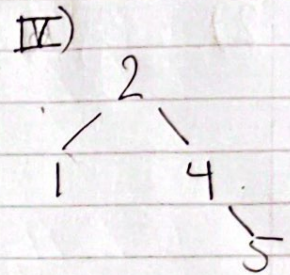 IV)
2
1 4
5